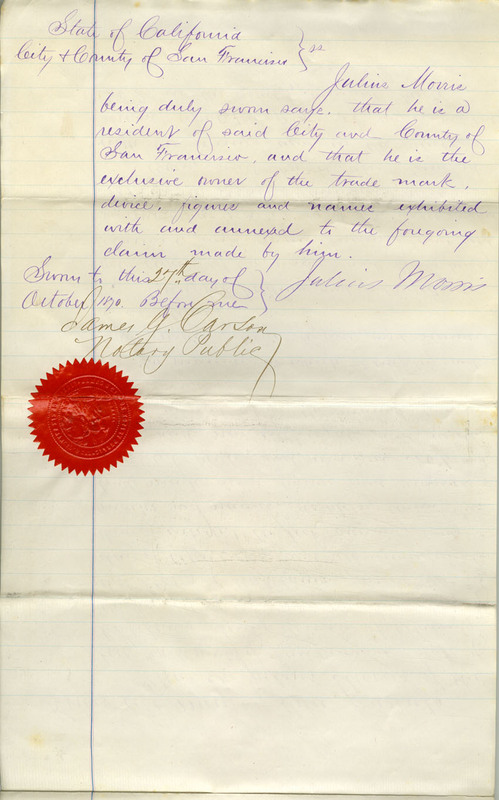 State of California
City & County of San Francisco } ss
Julius Morris
being duly sworn says, that he is a
resident of said City and County of
San Francisco, and that he is the
exclusive owner of the trade mark,
device, figures and names exhibited
with and annexed to the foregoing
claim made by him.
Sworn to this 27th day of
October 1870. Before me }
Julius Morris
James G. Carson
Notary Public